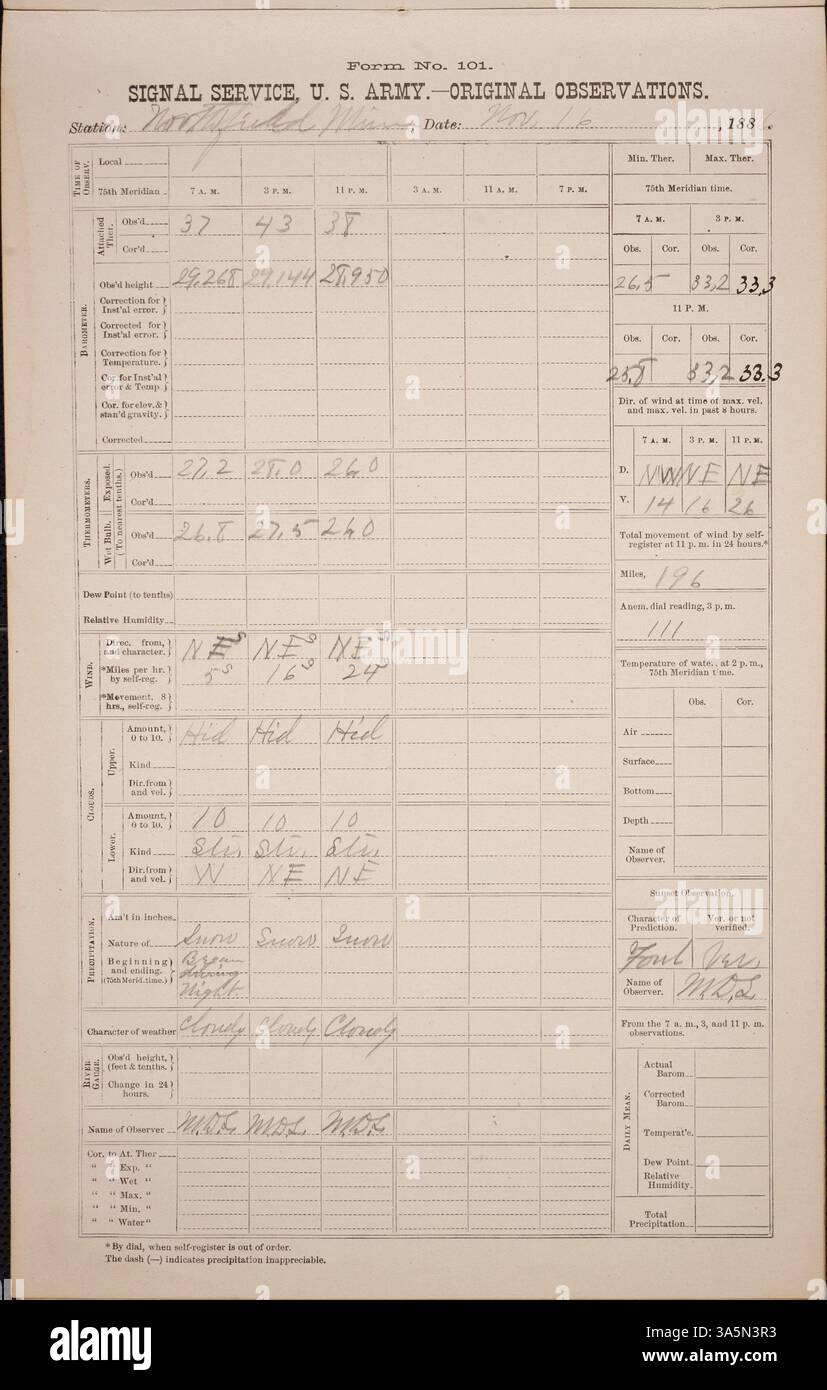 Form No. 101.
SIGNAL SERVICE, U. S. ARMY.—ORIGINAL OBSERVATIONS.
Station: Northfield Minn, Date: Nov. 16, 188
TIME OF OBSERV.
Local
75th Meridian 7 A. M. 3 P. M. 11 P. M. 3 A. M. 11 A. M. 7 P. M.
BAROMETER.
Attached Ther.
Obs'd 37 43 38
Cor'd
Obs'd height 29,268 29,144 28,950
Correction for Inst'al error.
Corrected for Inst'al error.
Correction for Temperature.
Cor. for Inst'al error & Temp.
Cor. for elev. & stan'd gravity.
Corrected
THERMOMETERS.
(To nearest tenths.)
Exposed.
Obs'd 27,2 28,0 26,0
Cor'd
Wet Bulb.
Obs'd 26.8 27,5 26,0
Cor'd
Dew Point (to tenths)
Relative Humidity
WIND.
Direc. from, and character. NE S NE S NE S
*Miles per hr. by self-reg. 5 S 16 S 24
*Movement, 8 hrs., self-reg.
CLOUDS.
Upper.
Amount, 0 to 10. Hid Hid Hid
Kind
Dir. from and vel.
Lower.
Amount, 0 to 10. 10 10 10
Kind Str, Str, Str,
Dir. from and vel. W NE NE
PRECIPITATION.
Am't in inches.
Nature of Snow Snow Snow
Beginning and ending. (75th Merid. time.) Began during Night
Character of weather Cloudy Cloudy Cloudy
RIVER GAUGE.
Obs'd height, (feet & tenths.
Change in 24 hours.
Name of Observer M.D.L. M.D.L. M.D.L.
Cor. to At. Ther
" " Exp. "
" " Wet "
" " Max. "
" " Min. "
" " Water "
* By dial, when self-register is out of order.
The dash (—) indicates precipitation inappreciable.
Min. Ther. Max. Ther.
75th Meridian time.
7 A. M. 3 P. M.
Obs. Cor. Obs. Cor.
26,5 33,2 33,3
11 P. M.
Obs. Cor. Obs. Cor.
25,8 33,2 33.3
Dir. of wind at time of max. vel. and max. vel. in past 8 hours.
7 A. M. 3 P. M. 11 P. M.
D. NW NE NE
V. 14 16 26
Total movement of wind by self-register at 11 p. m. in 24 hours.*
Miles, 196
Anem. dial reading, 3 p. m.
111
Temperature of water, at 2 p. m., 75th Meridian time.
Obs. Cor.
Air
Surface
Bottom
Depth
Name of Observer.
Sunset Observation.
Character of Prediction. Ver. or not verified.
Foul Ver.
Name of Observer. M.D.L.
From the 7 a. m., 3, and 11 p. m. observations.
DAILY MEAN.
Actual Barom.
Corrected Barom.
Temperat'e.
Dew Point
Relative Humidity.
Total Precipitation.
alamy
a
Image ID: 3A5N3R3
www.alamy.com